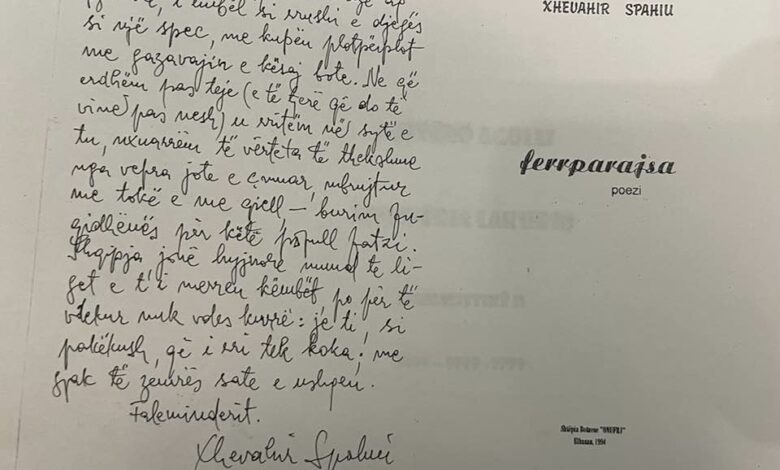 i ëmbël si rrushi e djegës
si një spec, me kupën plotpërplot
me gazavajin e kësaj bote. Ne që
erdhëm pas teje (e të tjerë që do të
vinë pas nesh) u rritëm në sytë e
tu, nxuarrëm të vërteta të thekshme
nga vepra jote e çmuar, mbrujtur
me tokë e me qiell — burim fu-
qidhënës për këtë popull fatzi.
Shqipja jonë hyjnore mund të li-
get e t'i merren këmbët, po për të
vdekur nuk vdes kurrë: je ti, si
pakëkush, që i rri tek koka; me
gjak të zemrës sate e ushqen.
Faleminderit.
Xhevahir Spahiu
XHEVAHIR SPAHIU
ferrparajsa
poezi
Shtëpia Botuese "ONUFRI"
Elbasan, 1994